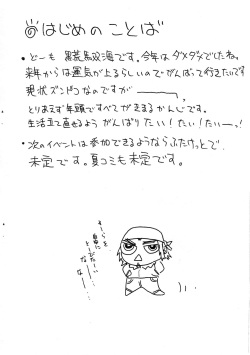 ◎はじめのことば
・どーも 黒荒馬双海です。今年はダメダメでしたね。
来年からは運気が上るらしいのでがんばって行きたいです
現状ズンドコなのですが———、
とりあえず年頭ですべてがきまるかんじです。
生活立て直せるようがんばりたい！たい！たいーっ！
・次のイベントは参加できるようならふたけっとで。
未定です。夏コミも未定です。
そーらを
自由に
とーびたい
なー